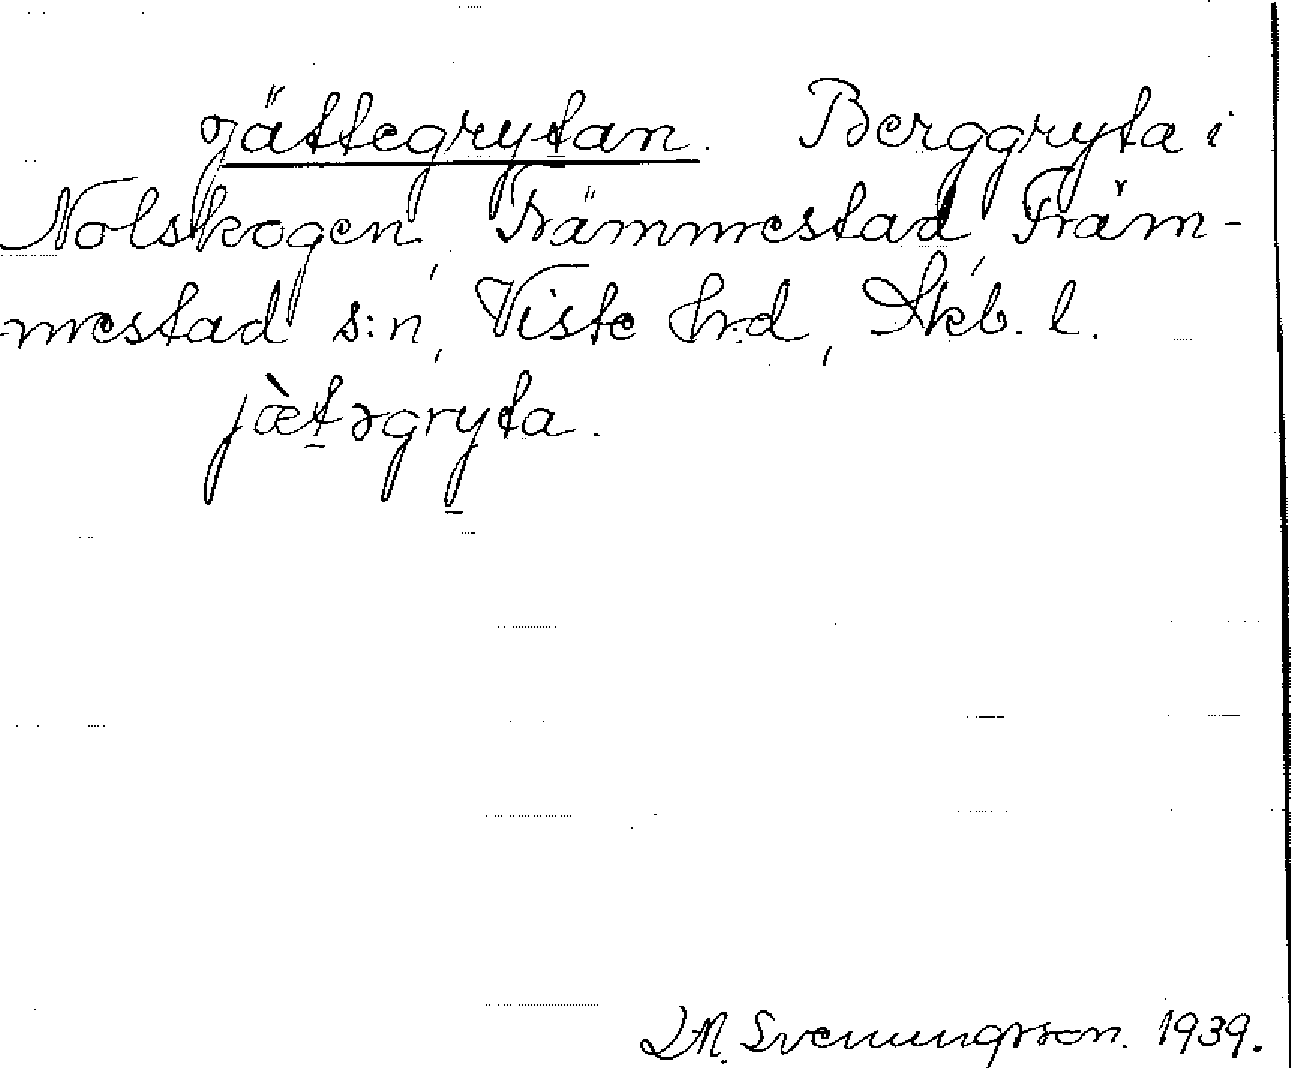 jättegrytan. Berggryta i
Nolskogen, Främmestad, Främ-
mestad s:n, Viste hrd, Skb. l.
jæ̀təgryta.
Svenungsson. 1939.